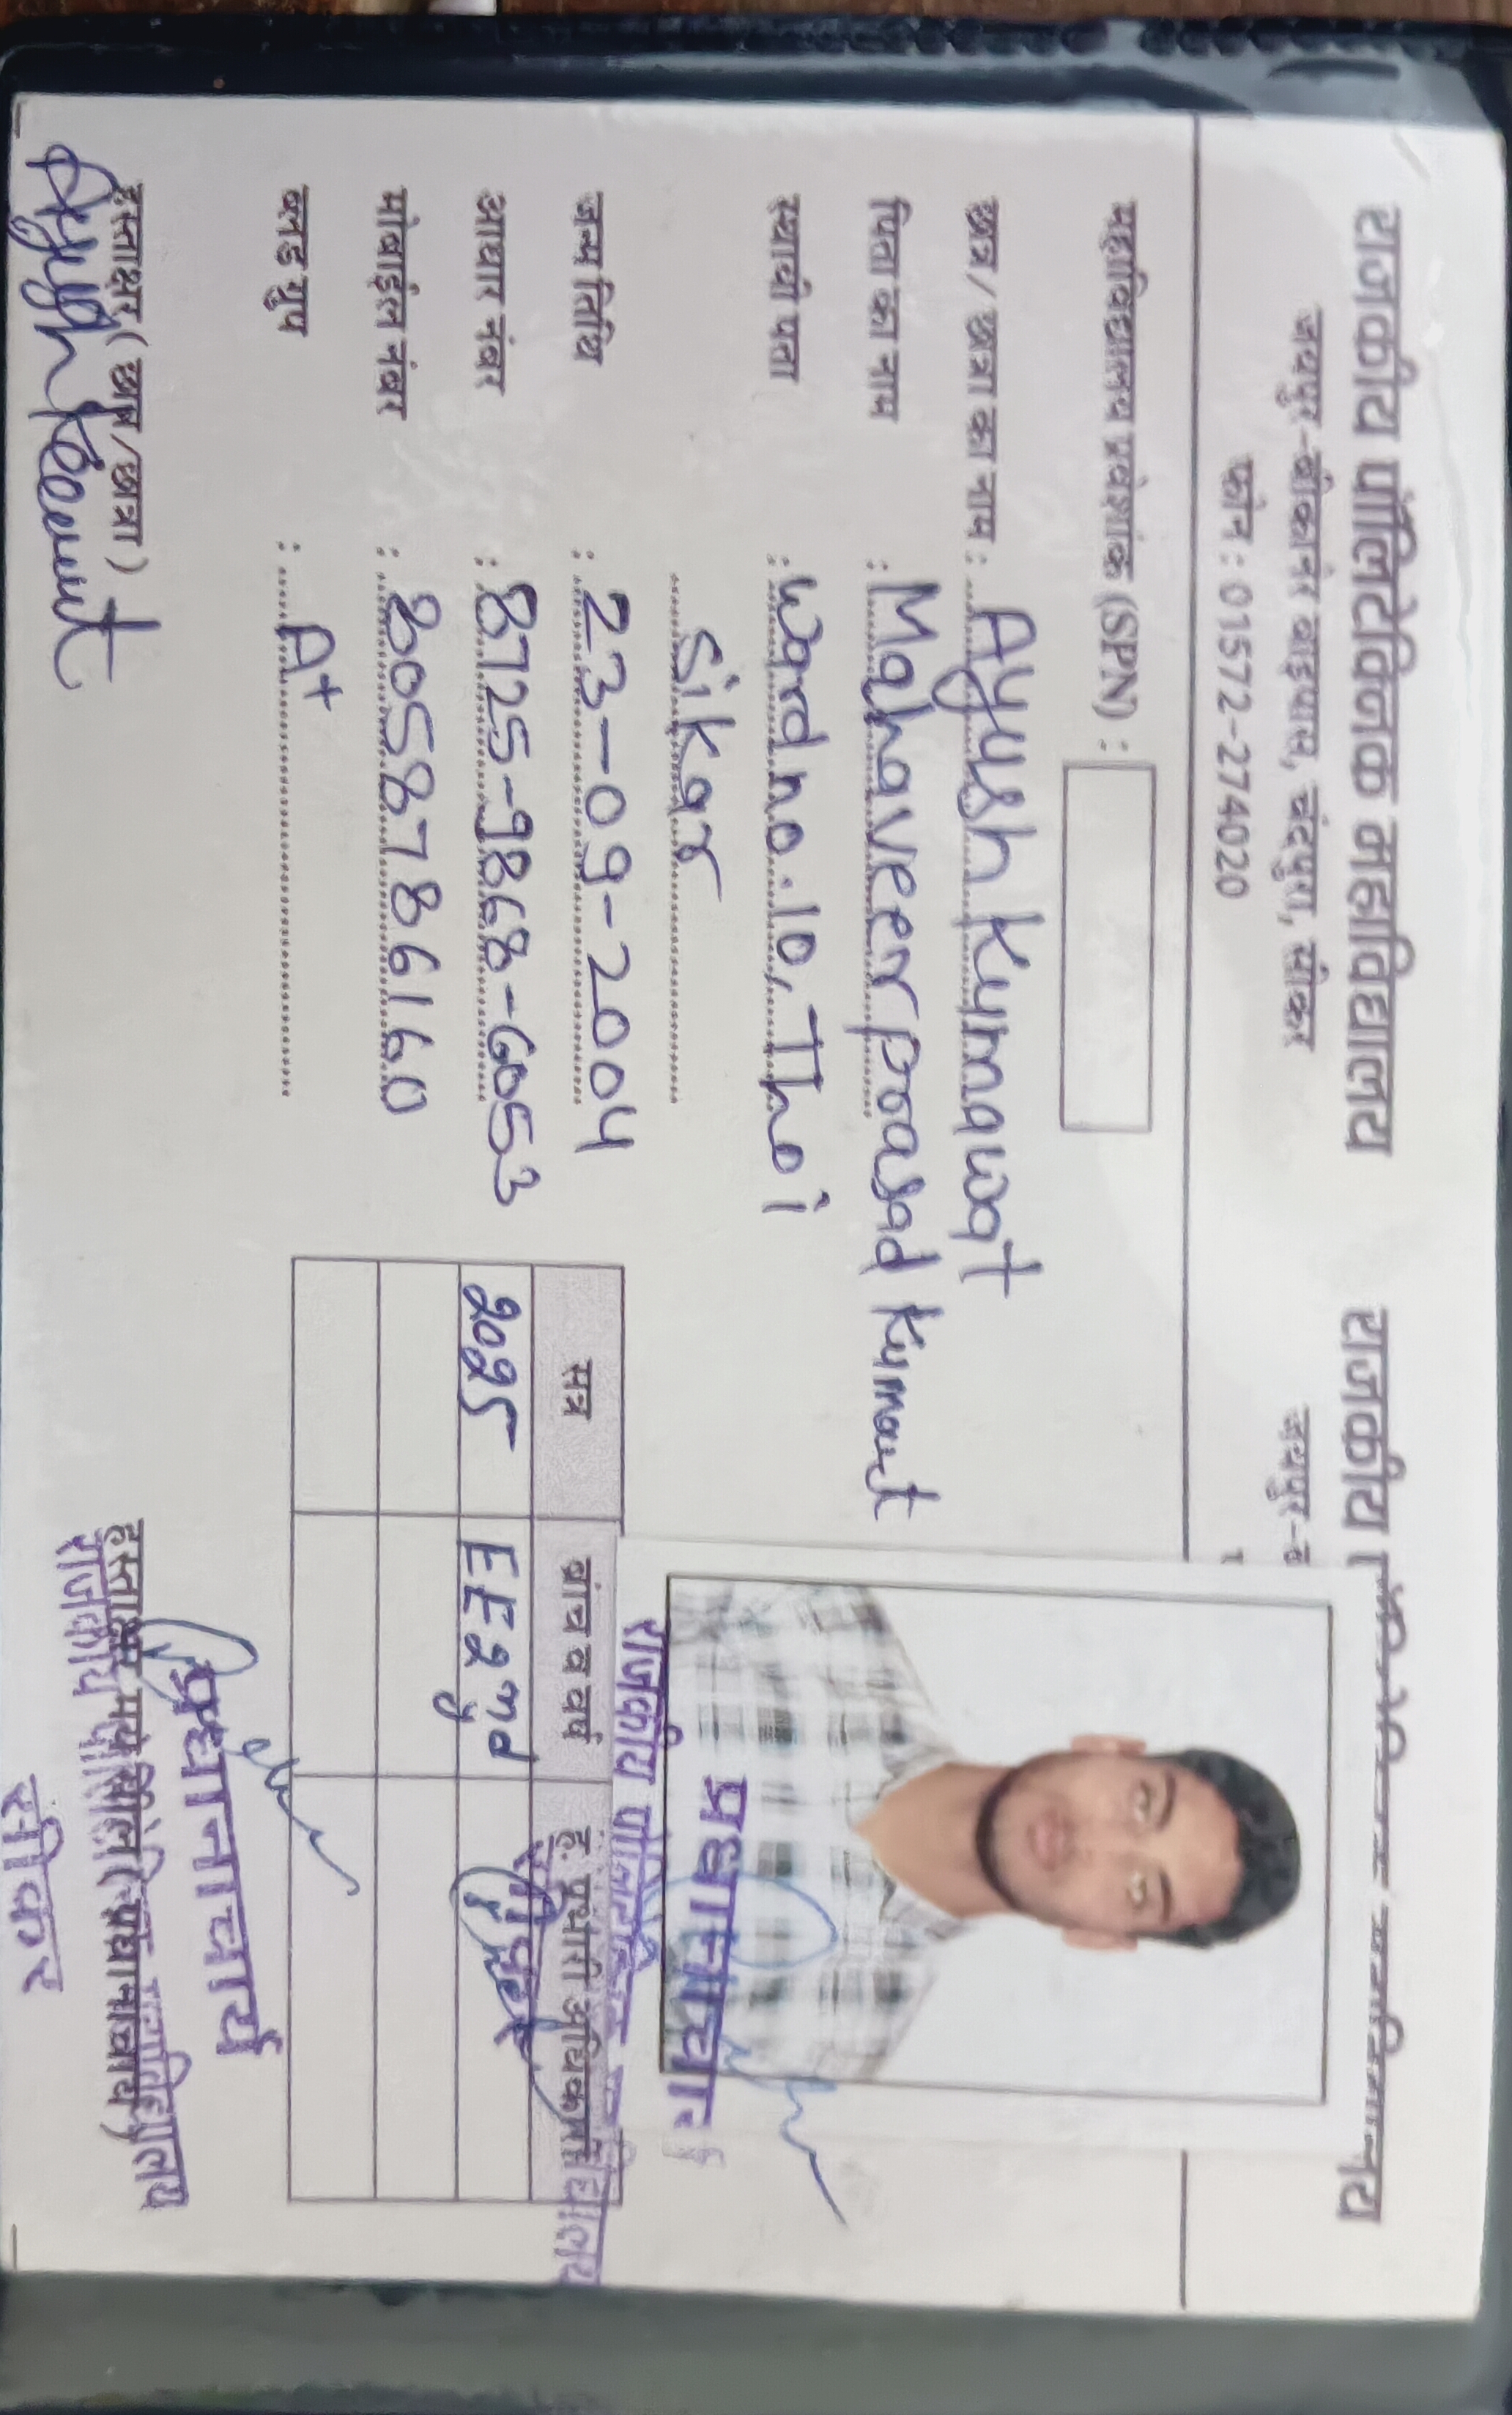 राजकीय पॉलिटेक्निक महाविद्यालय
जयपुर-बीकानेर बाइपास, चंदपुरा, सीकर
फोन : 01572-274020
महाविद्यालय प्रवेशांक (SPN) :
छात्र/ छात्रा का नाम : Ayush Kumawat
पिता का नाम : Mahaveer prasad Kumawat
स्थायी पता : Ward no. 10, Thoi
Sikar
जन्म तिथि : 23-09-2004
आधार नंबर : 8725-9868-6053
मोबाईल नंबर : 8058786160
ब्लड ग्रुप : A+
हस्ताक्षर ( छात्र/छात्रा )
Ayush Kumawat
राजकीय
जयपुर-ब
प्रधानाचार्य
राजकीय पॉलिटेक्निक महाविद्यालय
सीकर
सत्र ब्रांच व वर्ष ह. प्रभारी अधिकारी
2025 EE 2nd
प्रधानाचार्य
हस्ताक्षर मय सील (प्रधानाचार्य)
राजकीय पॉलिटेक्निक महाविद्यालय
सीकर